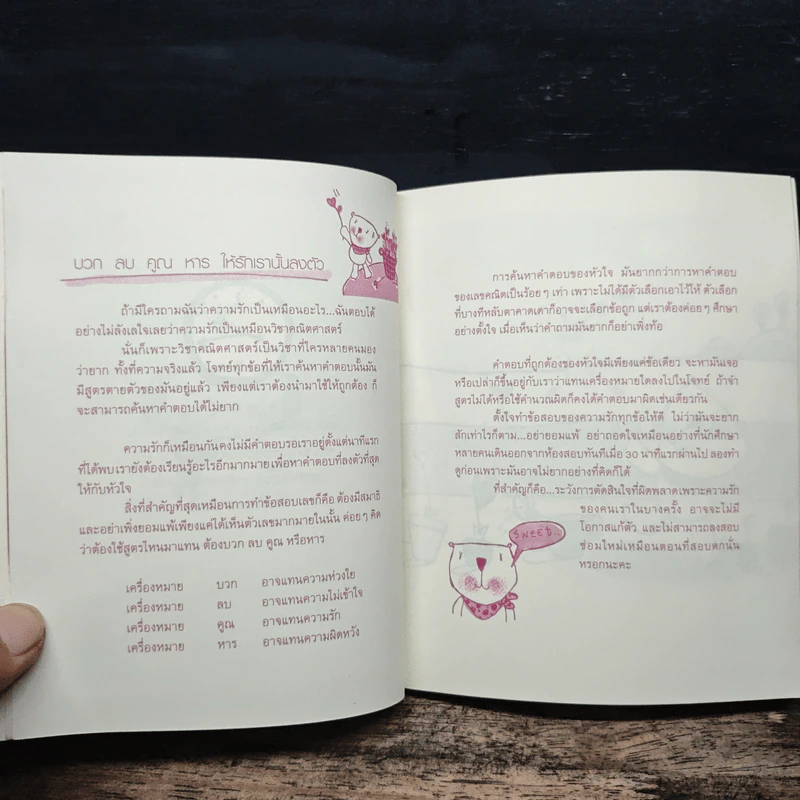 บวก ลบ คูณ หาร ให้รักเรานั้นลงตัว
ถ้ามีใครถามฉันว่าความรักเป็นเหมือนอะไร...ฉันตอบได้
อย่างไม่ลังเลใจเลยว่าความรักเป็นเหมือนวิชาคณิตศาสตร์
นั่นก็เพราะวิชาคณิตศาสตร์เป็นวิชาที่ใครหลายคนมอง
ว่ายาก ทั้งที่ความจริงแล้ว โจทย์ทุกข้อที่ให้เราค้นหาคำตอบนั้นมัน
มีสูตรตายตัวของมันอยู่แล้ว เพียงแต่เราต้องนำมาใช้ให้ถูกต้อง ก็
จะสามารถค้นหาคำตอบได้ไม่ยาก
ความรักก็เหมือนกันคงไม่มีคำตอบรอเราอยู่ตั้งแต่นาทีแรก
ที่ได้พบเรายังต้องเรียนรู้อะไรอีกมากมาย เพื่อหาคำตอบที่ลงตัวที่สุด
ให้กับหัวใจ
สิ่งที่สำคัญที่สุดเหมือนการทำข้อสอบเลขก็คือ ต้องมีสมาธิ
และอย่าเพิ่งยอมแพ้เพียงแค่ได้เห็นตัวเลขมากมายในนั้น ค่อยๆ คิด
ว่าต้องใช้สูตรไหนมาแทน ต้องบวก ลบ คูณ หรือหาร
เครื่องหมาย บวก อาจแทนความห่วงใย
เครื่องหมาย ลบ อาจแทนความไม่เข้าใจ
เครื่องหมาย คูณ อาจแทนความรัก
เครื่องหมาย หาร อาจแทนความผิดหวัง
การค้นหาคำตอบของหัวใจ มันยากกว่าการหาคำตอบ
ของเลขคณิตเป็นร้อยๆ เท่า เพราะไม่ได้มีตัวเลือกเอาไว้ให้ ตัวเลือก
ที่บางทีหลับตาคาดเดาก็อาจจะเลือกข้อถูก แต่เราต้องค่อยๆ ศึกษา
อย่างตั้งใจ เมื่อเห็นว่าคำถามมันยากก็อย่าเพิ่งท้อ
คำตอบที่ถูกต้องของหัวใจมีเพียงแค่ข้อเดียว จะหามันเจอ
หรือเปล่าก็ขึ้นอยู่กับเราว่าแทนเครื่องหมายใดลงไปในโจทย์ ถ้าจำ
สูตรไม่ได้หรือใช้คำนวณผิดก็คงได้คำตอบมาผิดเช่นเดียวกัน
ตั้งใจทำข้อสอบของความรักทุกข้อให้ดี ไม่ว่ามันจะยาก
สักเท่าไรก็ตาม...อย่ายอมแพ้ อย่าถอดใจเหมือนอย่างที่นักศึกษา
หลายคนเดินออกจากห้องสอบทันทีเมื่อ 30 นาทีแรกผ่านไป ลองทำ
ดูก่อนเพราะมันอาจไม่ยากอย่างที่คิดก็ได้
ที่สำคัญก็คือ...ระวังการตัดสินใจที่ผิดพลาดเพราะความรัก
ของคนเราในบางครั้ง อาจจะไม่มี
โอกาสแก้ตัว และไม่สามารถลงสอบ
ซ่อมใหม่เหมือนตอนที่สอบตกนั่น
หรอกนะคะ
SWEET...